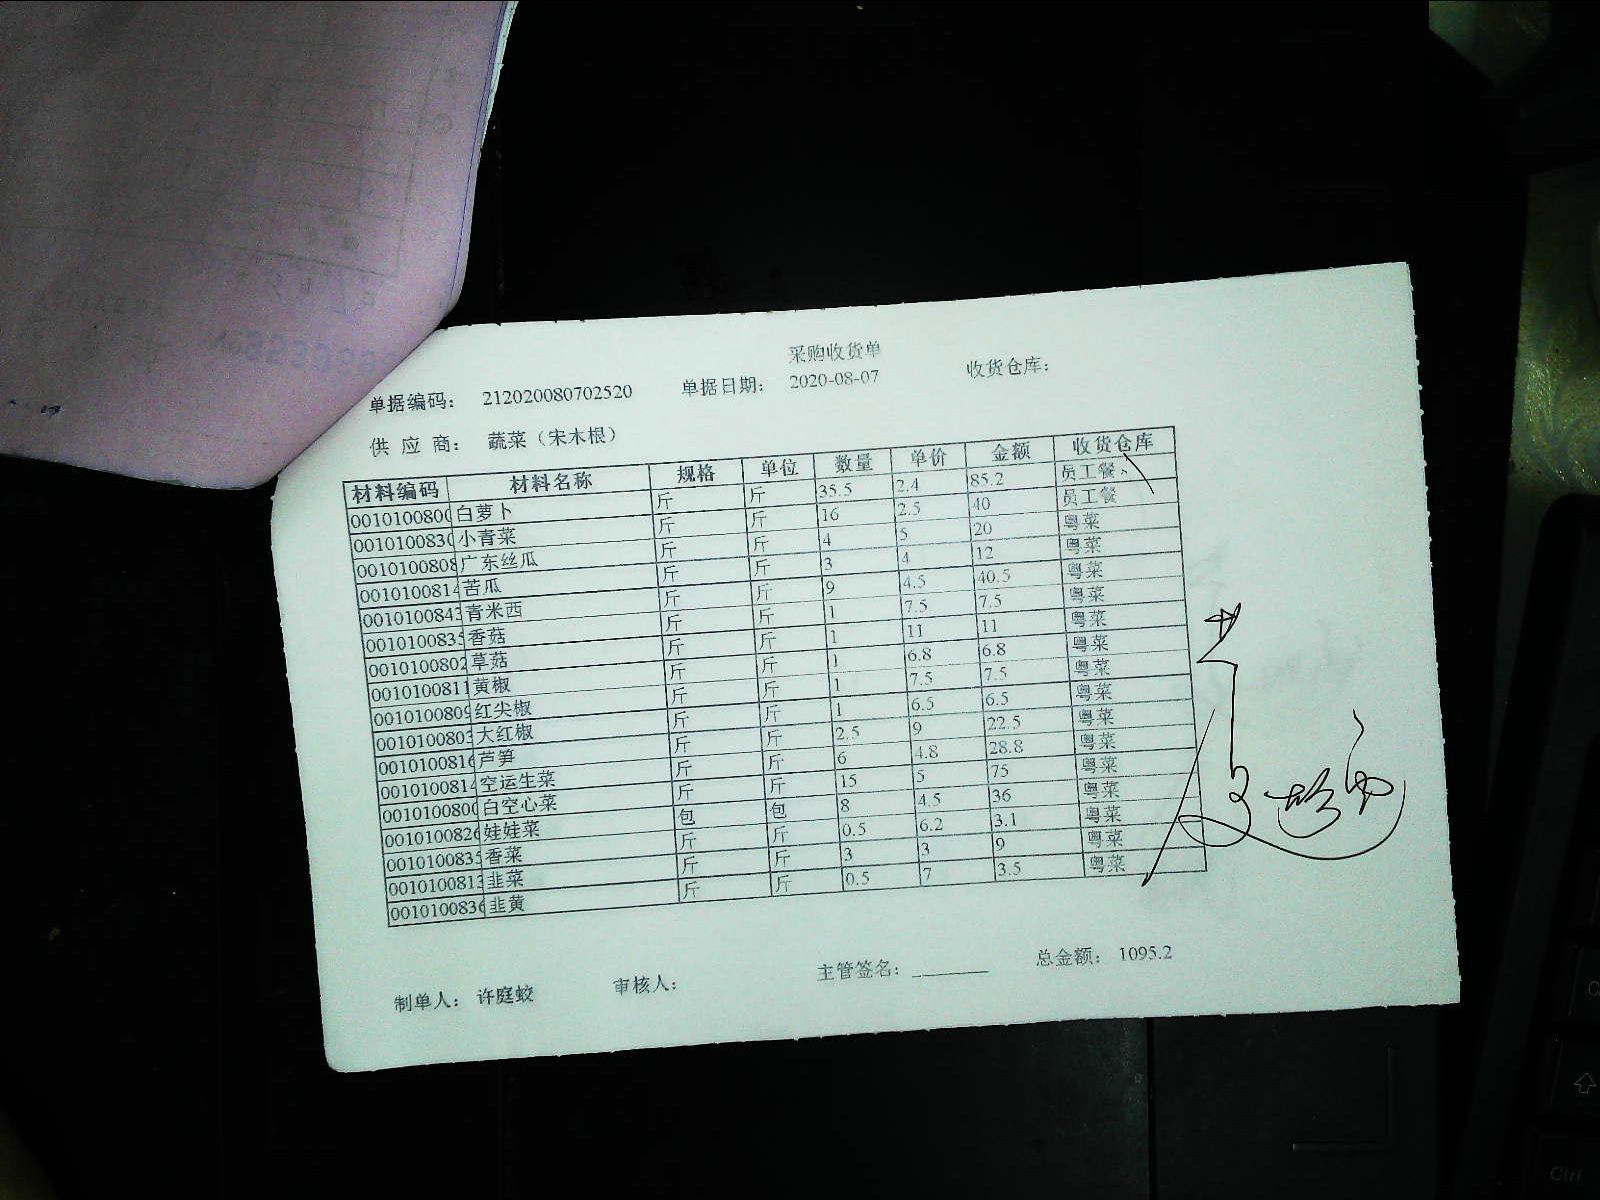 采购收货单
单据编码： 212020080702520 单据日期： 2020-08-07 收货仓库：
供 应 商： 蔬菜（宋木根）
材料编码 材料名称 规格 单位 数量 单价 金额 收货仓库
0010100800 白萝卜 斤 斤 35.5 2.4 85.2 员工餐
0010100830 小青菜 斤 斤 16 2.5 40 员工餐
0010100808 广东丝瓜 斤 斤 4 5 20 粤菜
0010100814 苦瓜 斤 斤 3 4 12 粤菜
0010100843 青米西 斤 斤 9 4.5 40.5 粤菜
0010100835 香菇 斤 斤 1 7.5 7.5 粤菜
0010100802 草菇 斤 斤 1 11 11 粤菜
0010100811 黄椒 斤 斤 1 6.8 6.8 粤菜
0010100809 红尖椒 斤 斤 1 7.5 7.5 粤菜
0010100803 大红椒 斤 斤 1 6.5 6.5 粤菜
0010100816 芦笋 斤 斤 2.5 9 22.5 粤菜
0010100814 空运生菜 斤 斤 6 4.8 28.8 粤菜
0010100800 白空心菜 斤 斤 15 5 75 粤菜
0010100826 娃娃菜 包 包 8 4.5 36 粤菜
0010100835 香菜 斤 斤 0.5 6.2 3.1 粤菜
0010100813 韭菜 斤 斤 3 3 9 粤菜
0010100836 韭黄 斤 斤 0.5 7 3.5 粤菜
制单人： 许庭蛟 审核人： 主管签名： 总金额： 1095.2